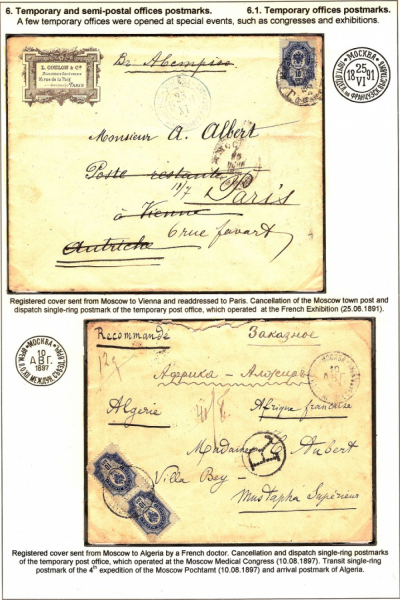 6. Temporary and semi-postal offices postmarks.
6.1. Temporary offices postmarks.
A few temporary offices were opened at special events, such as congresses and exhibitions.
L. COULON & Cie
Rue de la Paix
PARIS
Въ Австрію
МОСКВА
25
18 VI 91
Monsieur A. Albert
Poste restante
11/7 Paris
à Vienne
6 rue Favart
Autriche
Registered cover sent from Moscow to Vienna and readdressed to Paris. Cancellation of the Moscow town post and
dispatch single-ring postmark of the temporary post office, which operated at the French Exhibition (25.06.1891).
МОСКВА
10
АВГ.
1897
Recommandé Заказное
Африка – Алжиръ
Algérie Afrique française
Madame C. Aubert
Villa Bey -
Mustapha Supérieur
Registered cover sent from Moscow to Algeria by a French doctor. Cancellation and dispatch single-ring postmarks
of the temporary post office, which operated at the Moscow Medical Congress (10.08.1897). Transit single-ring
postmark of the 4th expedition of the Moscow Pochtamt (10.08.1897) and arrival postmark of Algeria.